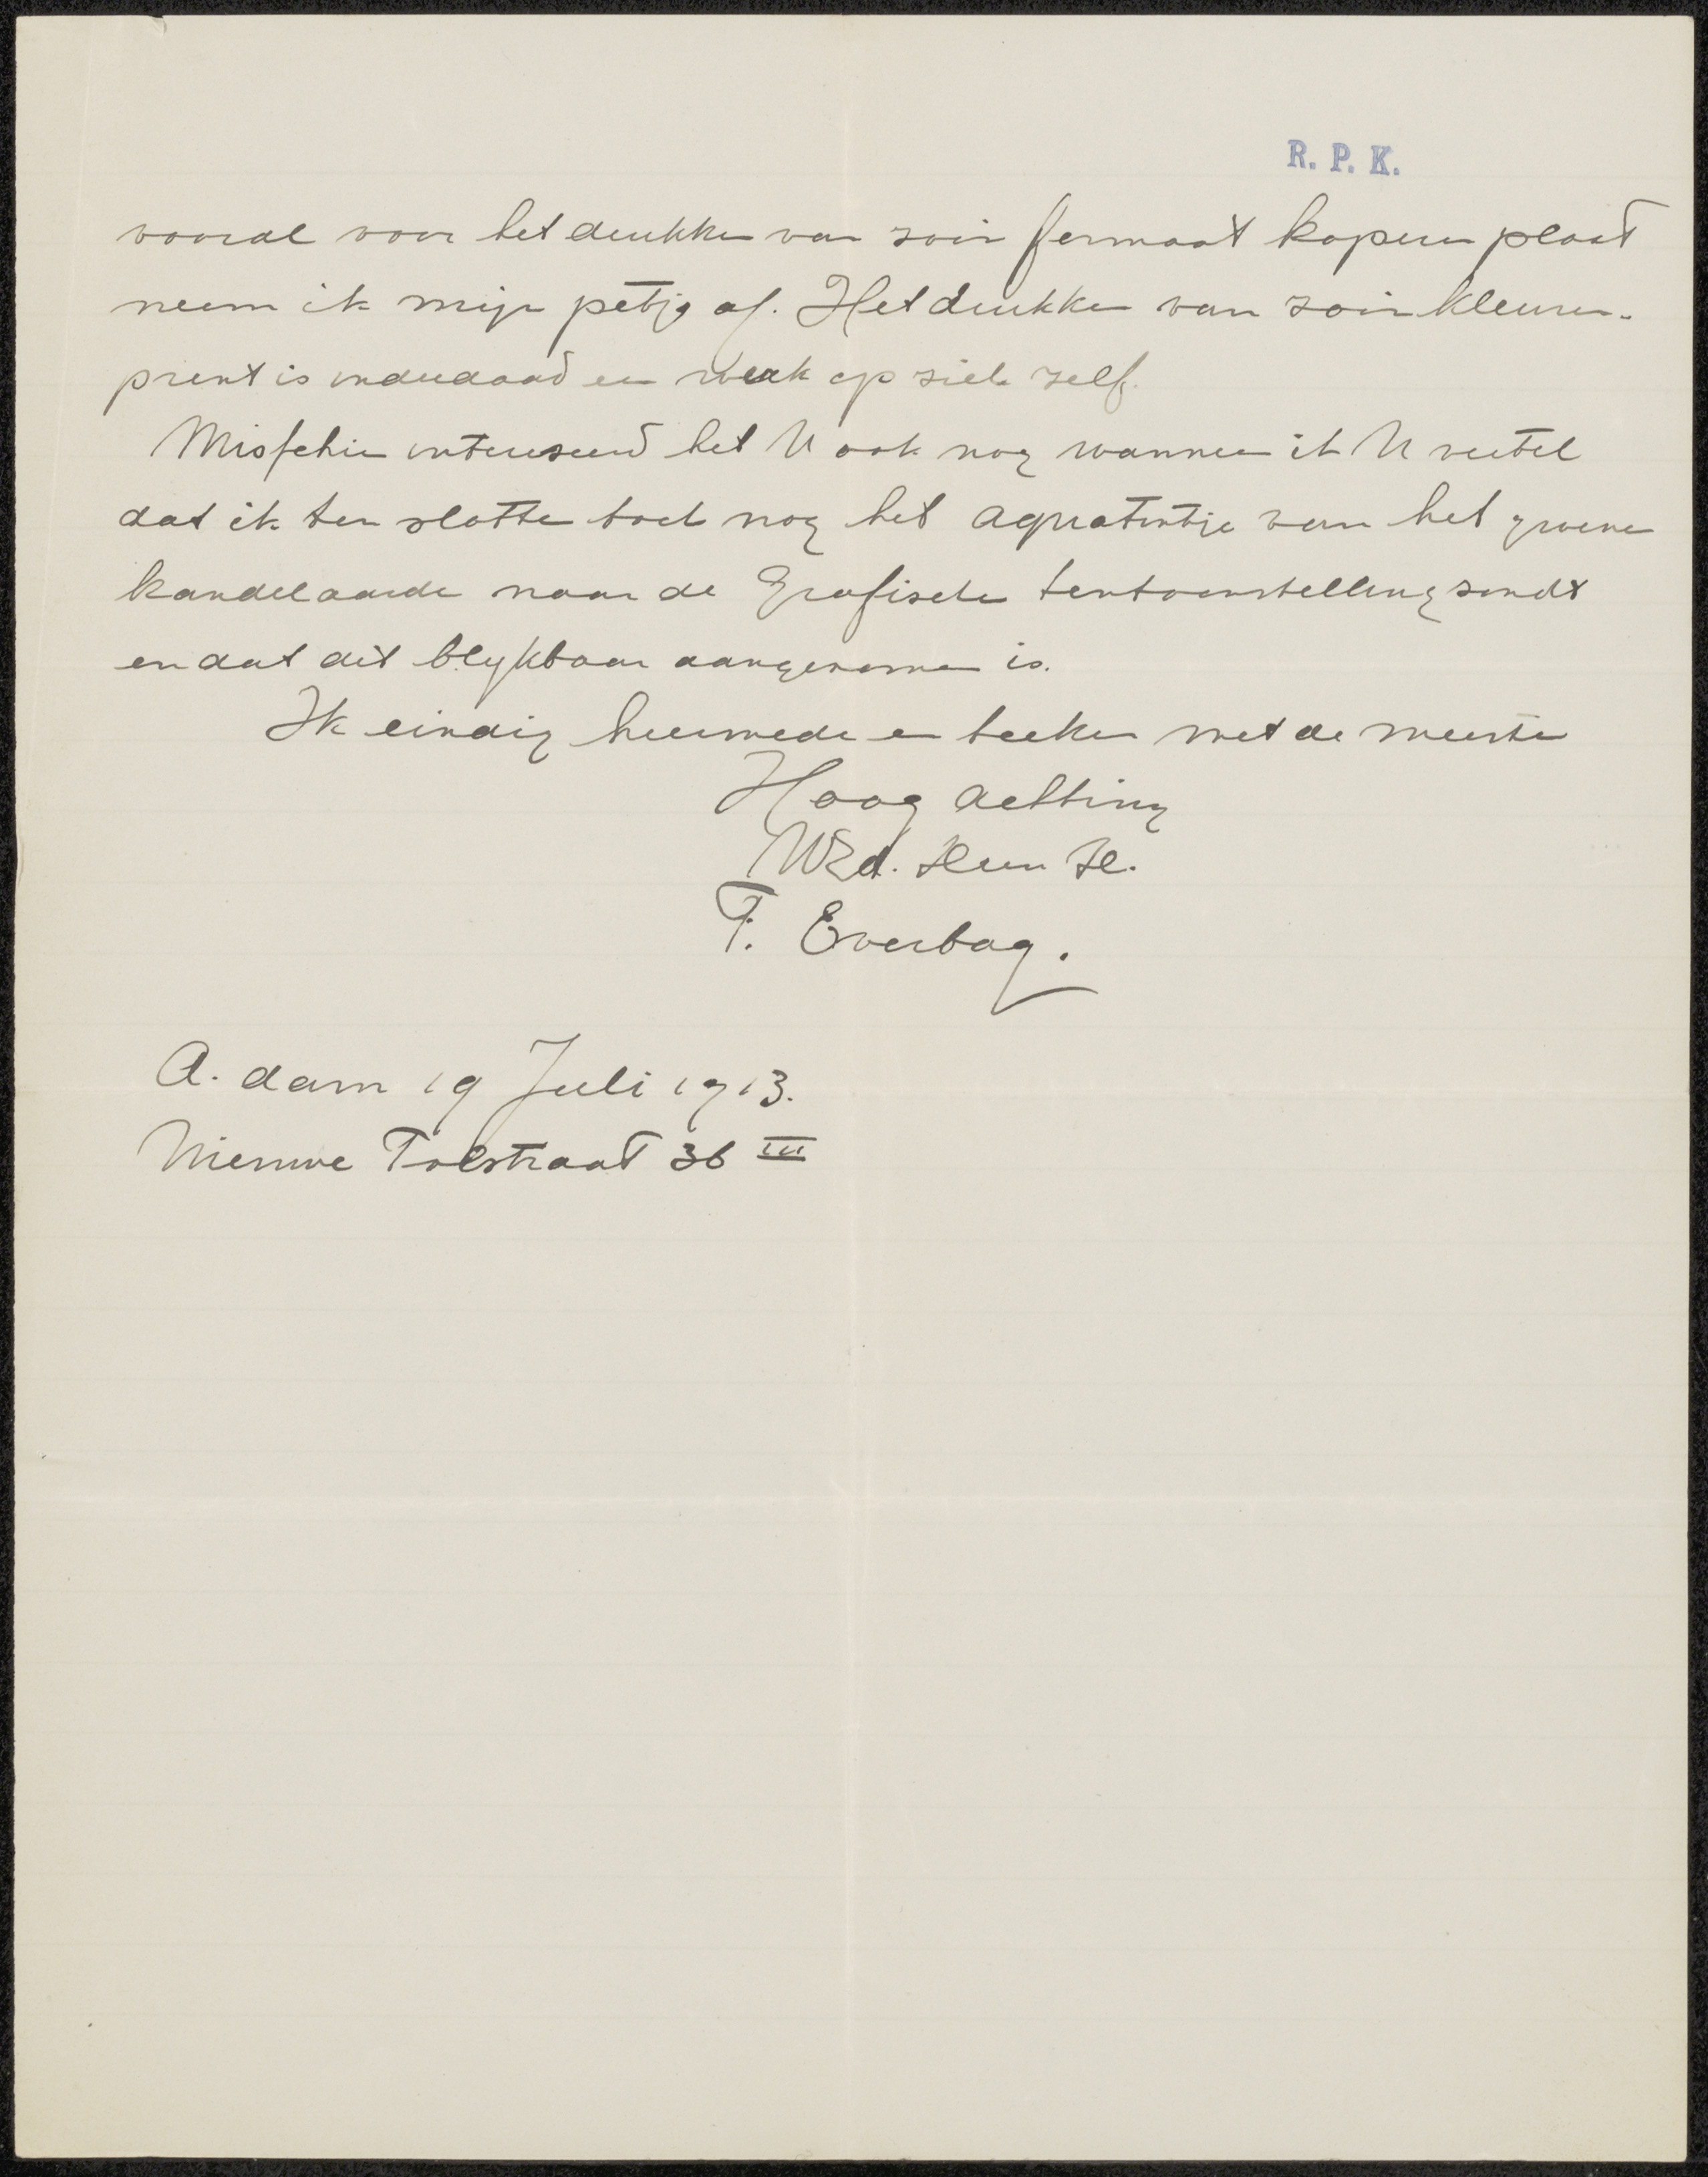 R. P. K.
vooral voor het drukken van zoo'n formaat koperen plaat
neem ik mijn petje af. Het drukken van zoo'n kleuren-
prent is inderdaad een werk op zich zelf.
Misschien interesseerd het U ook nog wanneer ik U vertel
dat ik ten slotte toch nog het aquatintje van het groene
kandelaarde naar de Grafische tentoonstelling zondt
en dat dit blykbaar aangenomen is.
Ik eindig hiermede en teeken met de meeste
Hoog achting
F. Everbag.
A. dam 19 Juli 1913.
Nieuwe Tolstraat 36 III